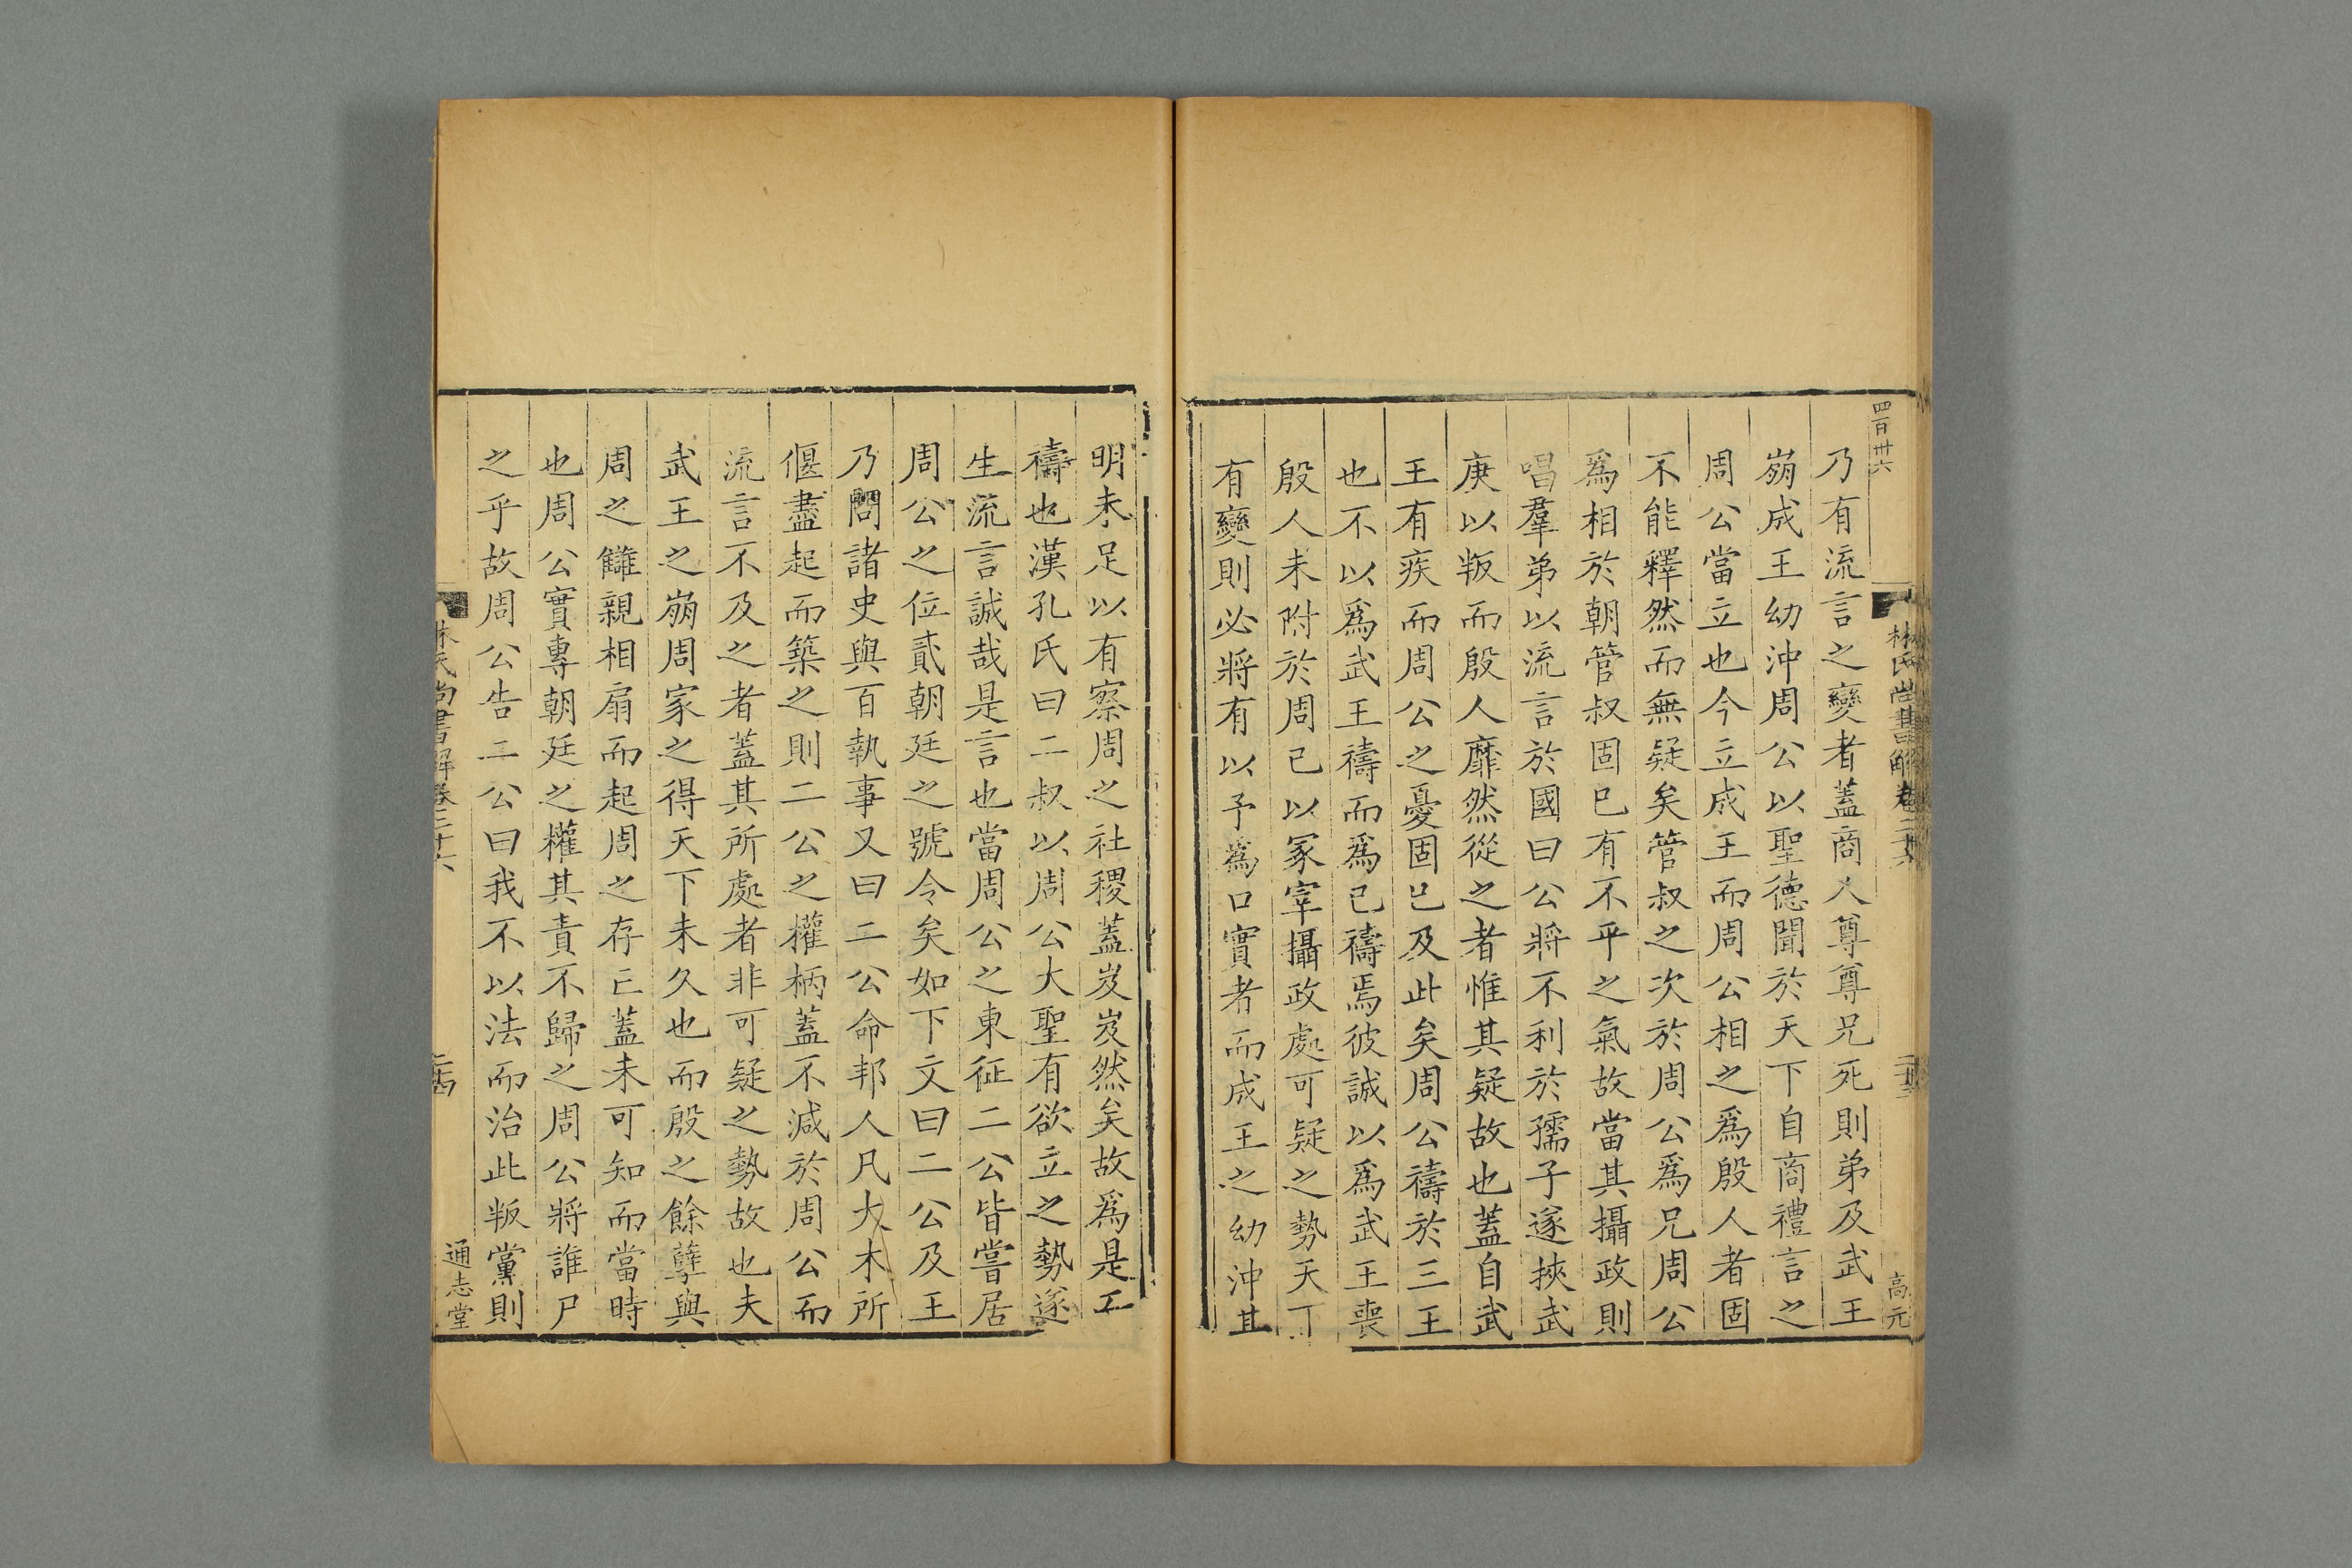 四百卅六
林氏尚書解卷二十六
高元
乃有流言之變者蓋商人尊尊兄死則弟及武王
崩成王幼沖周公以聖德聞於天下自商禮言之
周公當立也今立成王而周公相之爲殷人者固
不能釋然而無疑矣管叔之次於周公爲兄周公
爲相於朝管叔固已有不平之氣故當其攝政則
唱羣弟以流言於國曰公將不利於孺子遂挾武
庚以叛而殷人靡然從之者惟其疑故也蓋自武
王有疾而周公之憂固已及此矣周公禱於三王
也不以爲武王禱而爲己禱焉彼誠以爲武王喪
殷人未附於周已以冢宰攝政處可疑之勢天下
有變則必將有以予爲口實者而成王之幼沖其
明未足以有察周之社稷蓋岌岌然矣故爲是
禱也漢孔氏曰二叔以周公大聖有欲立之勢遂
生流言誠哉是言也當周公之東征二公皆嘗居
周公之位貳朝廷之號令矣如下文曰二公及王
乃問諸史與百執事又曰二公命邦人凡大木所
偃盡起而築之則二公之權柄蓋不減於周公而
流言不及之者蓋其所處者非可疑之勢故也夫
武王之崩周家之得天下未久也而殷之餘孽與
周之讎親相扇而起周之存亡蓋未可知而當時
也周公實專朝廷之權其責不歸之周公將誰尸
之乎故周公告二公曰我不以法而治此叛黨則
林氏尚書解卷二十六
二十四
通志堂